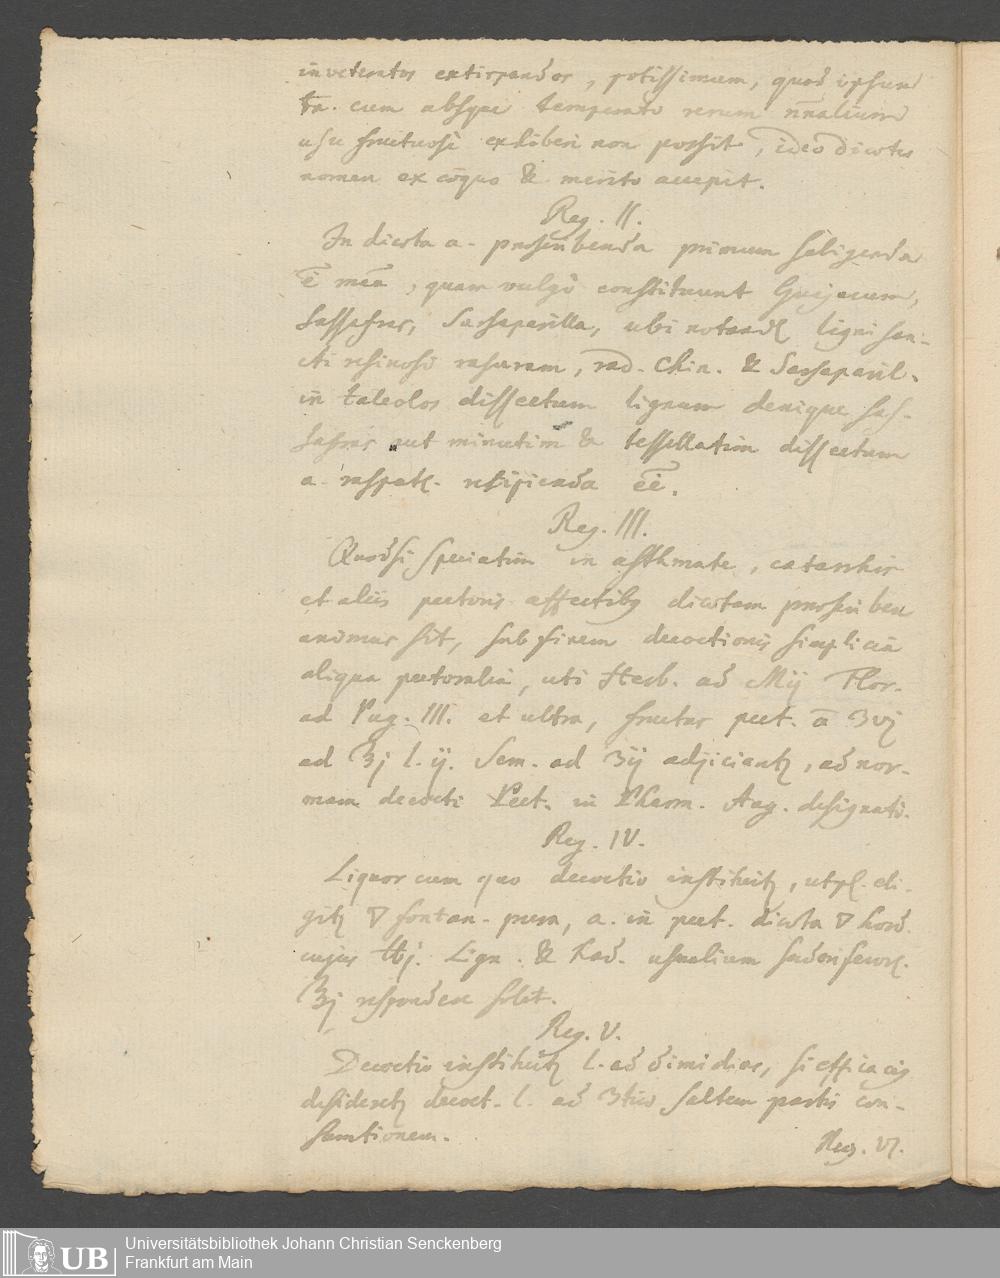 inveteratos extirpandos, potissimum, quod ipsum
tn. cum absque temperato rerum nnalium
usu fructuosè exhiberi non possit, ideo diaetes
nomen ex coquo & meritò accepit.
Reg. II.
In diaeta a. praescribenda primum seligenda
ē mea, quam vulgò constituunt Guajacum,
Sassafras, Sarsaparilla, ubi notand. ligni san-
cti resinosi rasuram, rad. Chin. & Sarsaparil.
in taleolos dissectum lignum denique Sas-
safras aut minutim & tessellatim dissectum
a. respicienda eē.
Reg. III.
Quodsi speciatim in asthmate, catarrhis
et aliis pectoris affectibq diaetam praescriben
animus sit, sub finem decoctionis simplicia
aliqua pectoralia, uti Herb. ad Mij Flor.
ad Pug. III. et ultra, fructus pect. ā ʒvj
ad ℥j l. ij. Sem. ad ʒij adjiciantz, ad nor-
mam decocti Pect. in Pharm. Aug. designati.
Reg. IV.
Liquor cum quo decoctio instituitz, eli-
gitz ▽ fontan. pura, a. in pect. diaeta ▽ hord.
cujus ℔j. Lign. & Rad. usualium
℥j respondere solet.
Reg. V.
Decoctio instituitz l. ad dimidias, si efficacig
desideretz decoct. l. ad 3tiæ saltem partis con-
sumtionem.
Reg. VI.
Universitätsbibliothek Johann Christian Senckenberg
Frankfurt am Main
UB